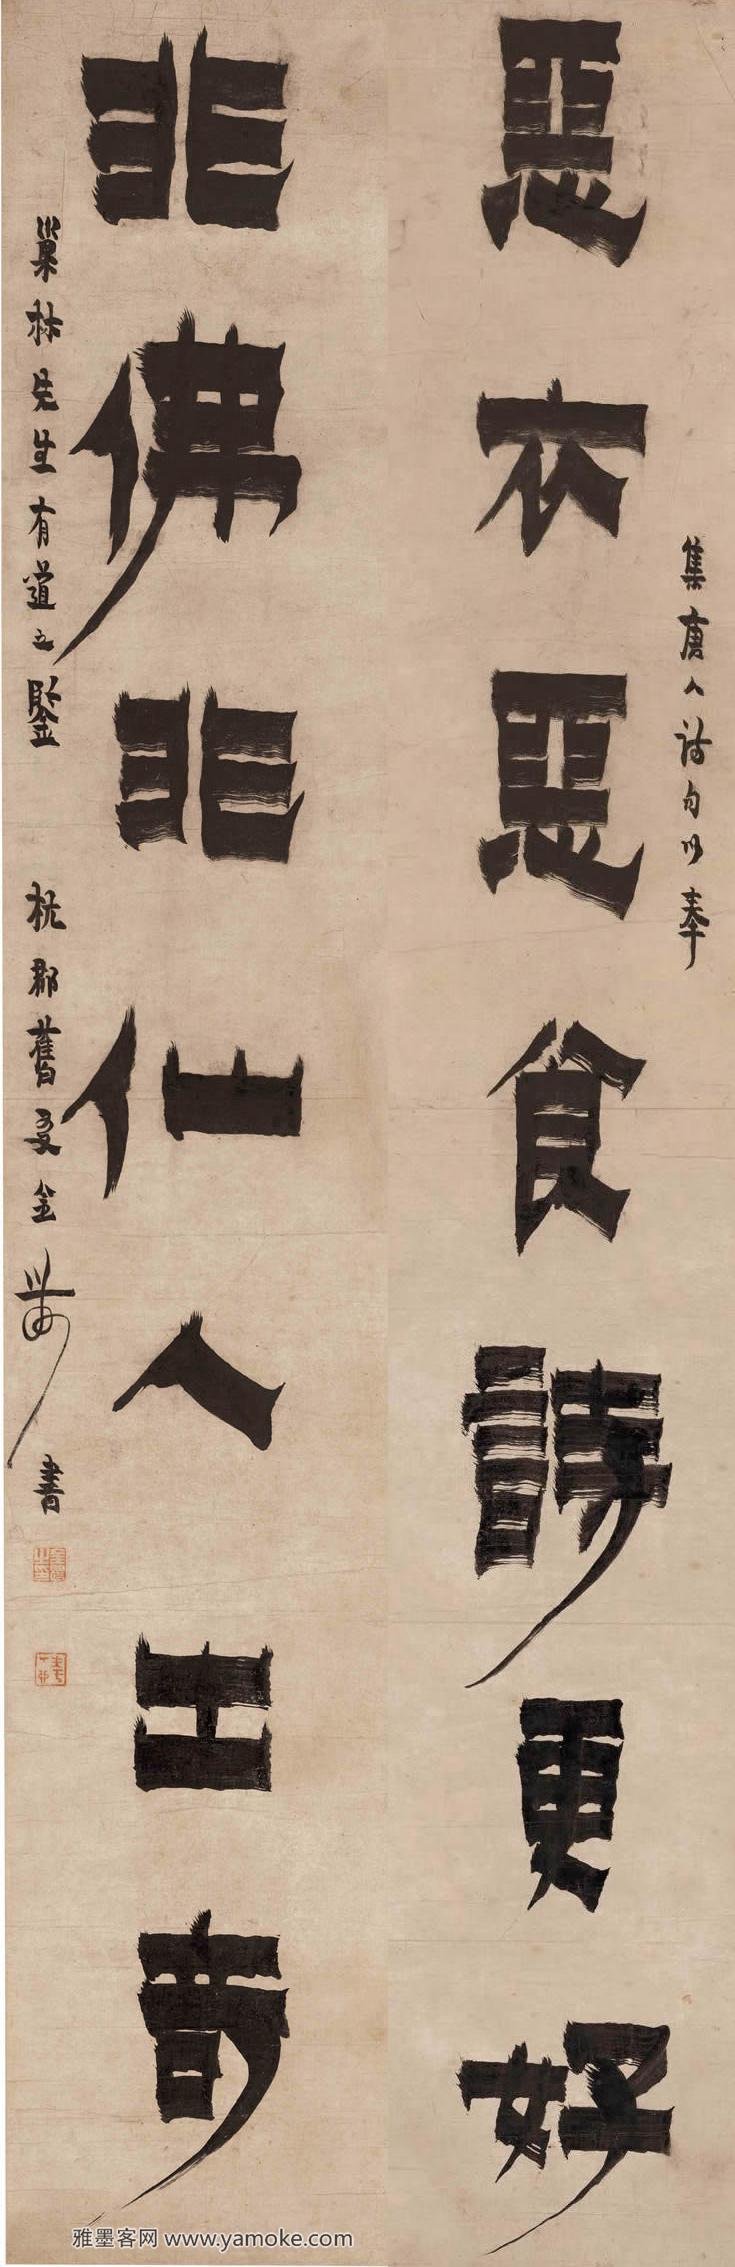 集唐人詩句以奉
惡衣惡食詩更好
非佛非仙人出奇
巢林先生有道之鑒 杭郡舊友金農書
雅墨客网 www.yamoke.com